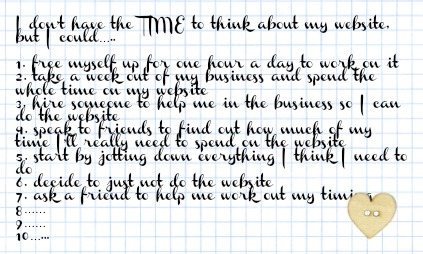 I don't have the TIME to think about my website,
but I could.....
1. free myself up for one hour a day to work on it
2. take a week out of my business and spend the
whole time on my website
3. hire someone to help me in the business so I can
do the website
4. speak to friends to find out how much of my
time I'll really need to spend on the website
5. start by jotting down everything I think I need to
do
6. decide to just not do the website
7. ask a friend to help me work out my
8......
9......
10.....